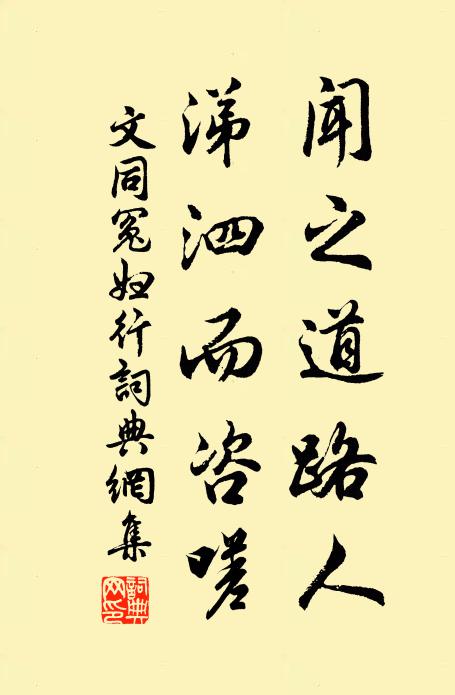 聞之道路人
涕泗而咨嗟
文同冤婦行詞典網集
詞典網印